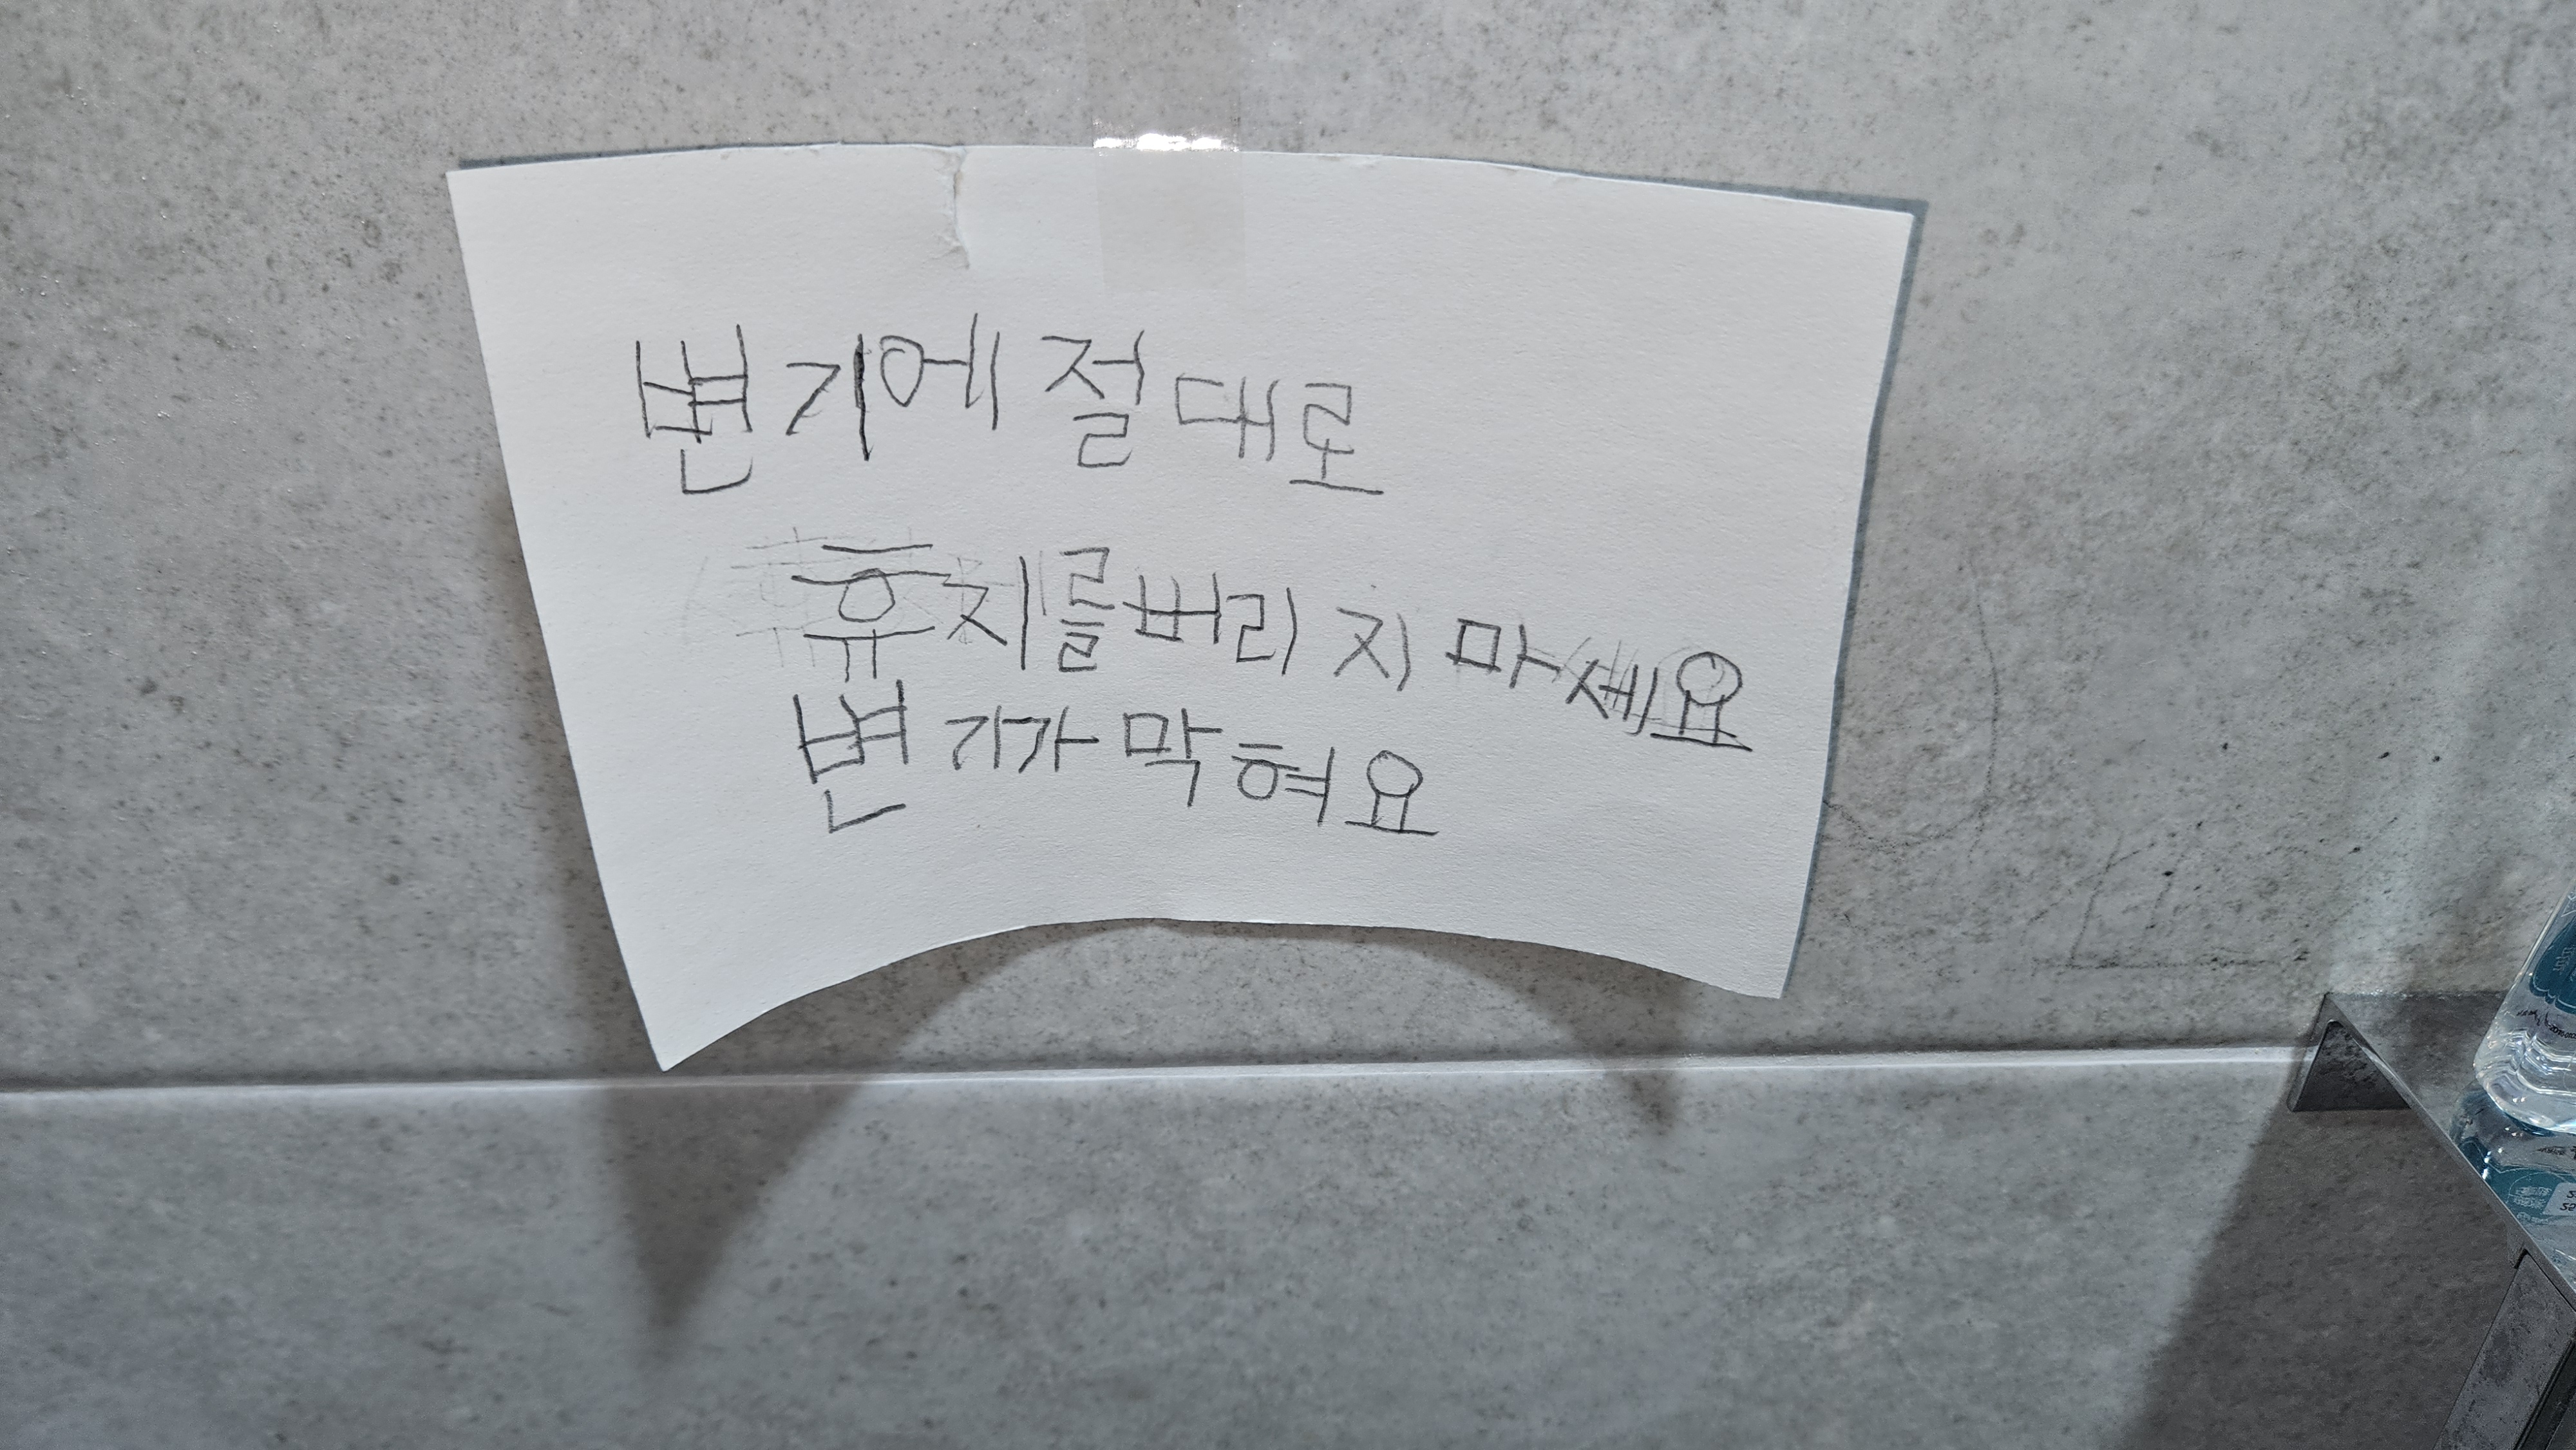 변기에 절대로
휴지를버리지 마세요
변기가 막혀요